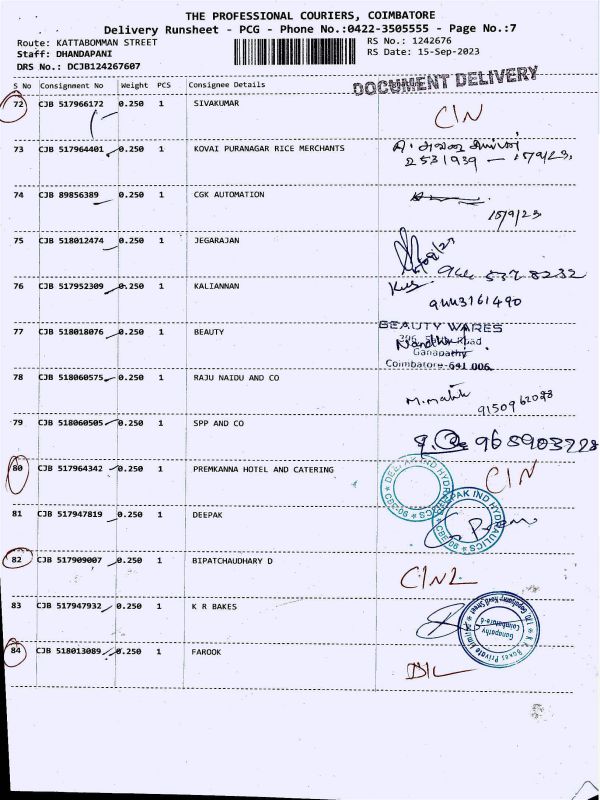 THE PROFESSIONAL COURIERS, COIMBATORE
Delivery Runsheet - PCG - Phone No.:0422-3505555 - Page No.:7
Route: KATTABOMMAN STREET RS No.: 1242676
Staff: DHANDAPANI RS Date: 15-Sep-2023
DRS No.: DCJB124267607
S No Consignment No Weight PCS Consignee Details
DOCUMENT DELIVERY
72 CJB 517966172 0.250 1 SIVAKUMAR CIN
73 CJB 517964401 0.250 1 KOVAI PURANAGAR RICE MERCHANTS
2531939 - 15/9/23
74 CJB 89856389 0.250 1 CGK AUTOMATION
15/9/23
75 CJB 518012474 0.250 1 JEGARAJAN
76 CJB 517952309 0.250 1 KALIANNAN
9443161490
77 CJB 518018076 0.250 1 BEAUTY BEAUTY WARES
Road
Ganapathy
Coimbatore-641 006.
78 CJB 518060575 0.250 1 RAJU NAIDU AND CO
M.malik
79 CJB 518060505 0.250 1 SPP AND CO
80 CJB 517964342 0.250 1 PREMKANNA HOTEL AND CATERING CIN
DEEPAK IND HYDRAULICS
CBE-06
81 CJB 517947819 0.250 1 DEEPAK
DEEPAK IND HYDRAULICS
CBE-06
Prem
82 CJB 517909007 0.250 1 BIPATCHAUDHARY D
83 CJB 517947932 0.250 1 K R BAKES
K R Bakes Private Limited
Ganapathy
Coimbatore-6
84 CJB 518013089 0.250 1 FAROOK DIL